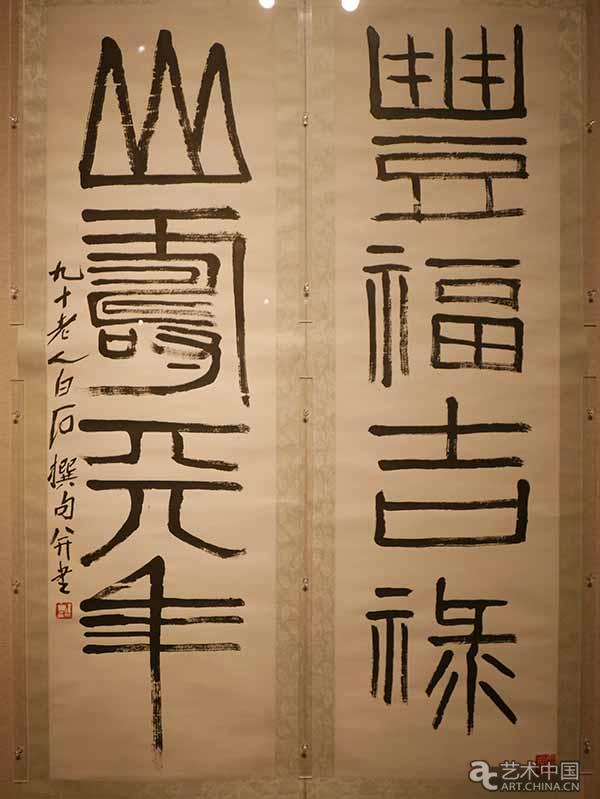 豐福吉祿
山壽元年
九十老人白石撰句并書
艺术中国
ART.CHINA.CN